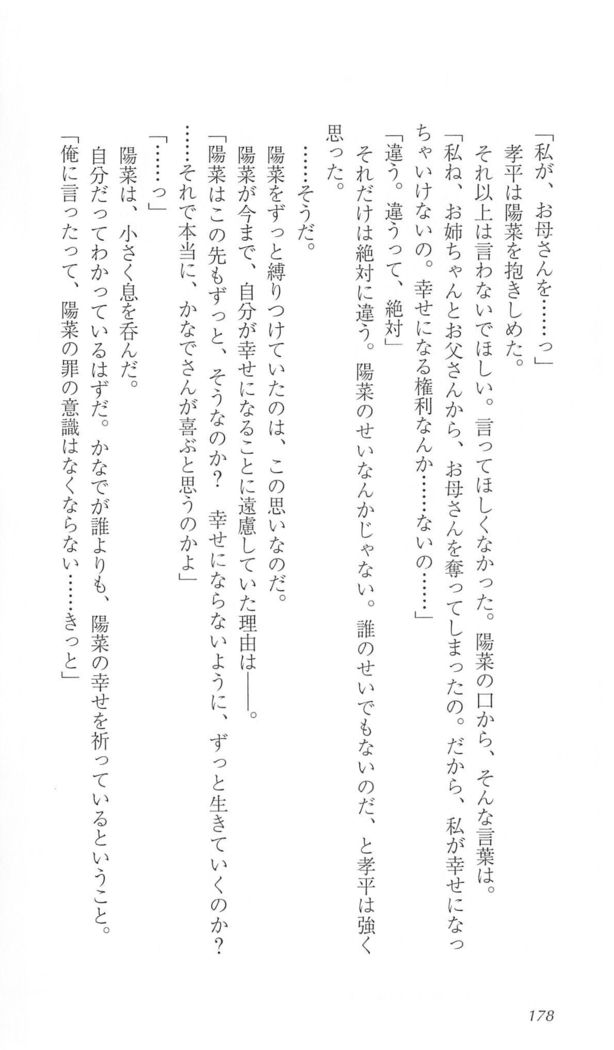 「私が、お母さんを……っ」
孝平は陽菜を抱きしめた。
それ以上は言わないでほしい。言ってほしくなかった。陽菜の口から、そんな言葉は。
「私ね、お姉ちゃんとお父さんから、お母さんを奪ってしまったの。だから、私が幸せになっ
ちゃいけないの。幸せになる権利なんか……ないの……」
「違う。違うって、絶対」
それだけは絶対に違う。陽菜のせいなんかじゃない。誰のせいでもないのだ、と孝平は強く
思った。
……そうだ。
陽菜をずっと縛りつけていたのは、この思いなのだ。
陽菜が今まで、自分が幸せになることに遠慮していた理由は――。
「陽菜はこの先もずっと、そうなのか？　幸せにならないように、ずっと生きていくのか？
……それで本当に、かなでさんが喜ぶと思うのかよ」
「……っ」
陽菜は、小さく息を呑んだ。
自分だってわかっているはずだ。かなでが誰よりも、陽菜の幸せを祈っているということ。
「俺に言ったって、陽菜の罪の意識はなくならない……きっと」
178